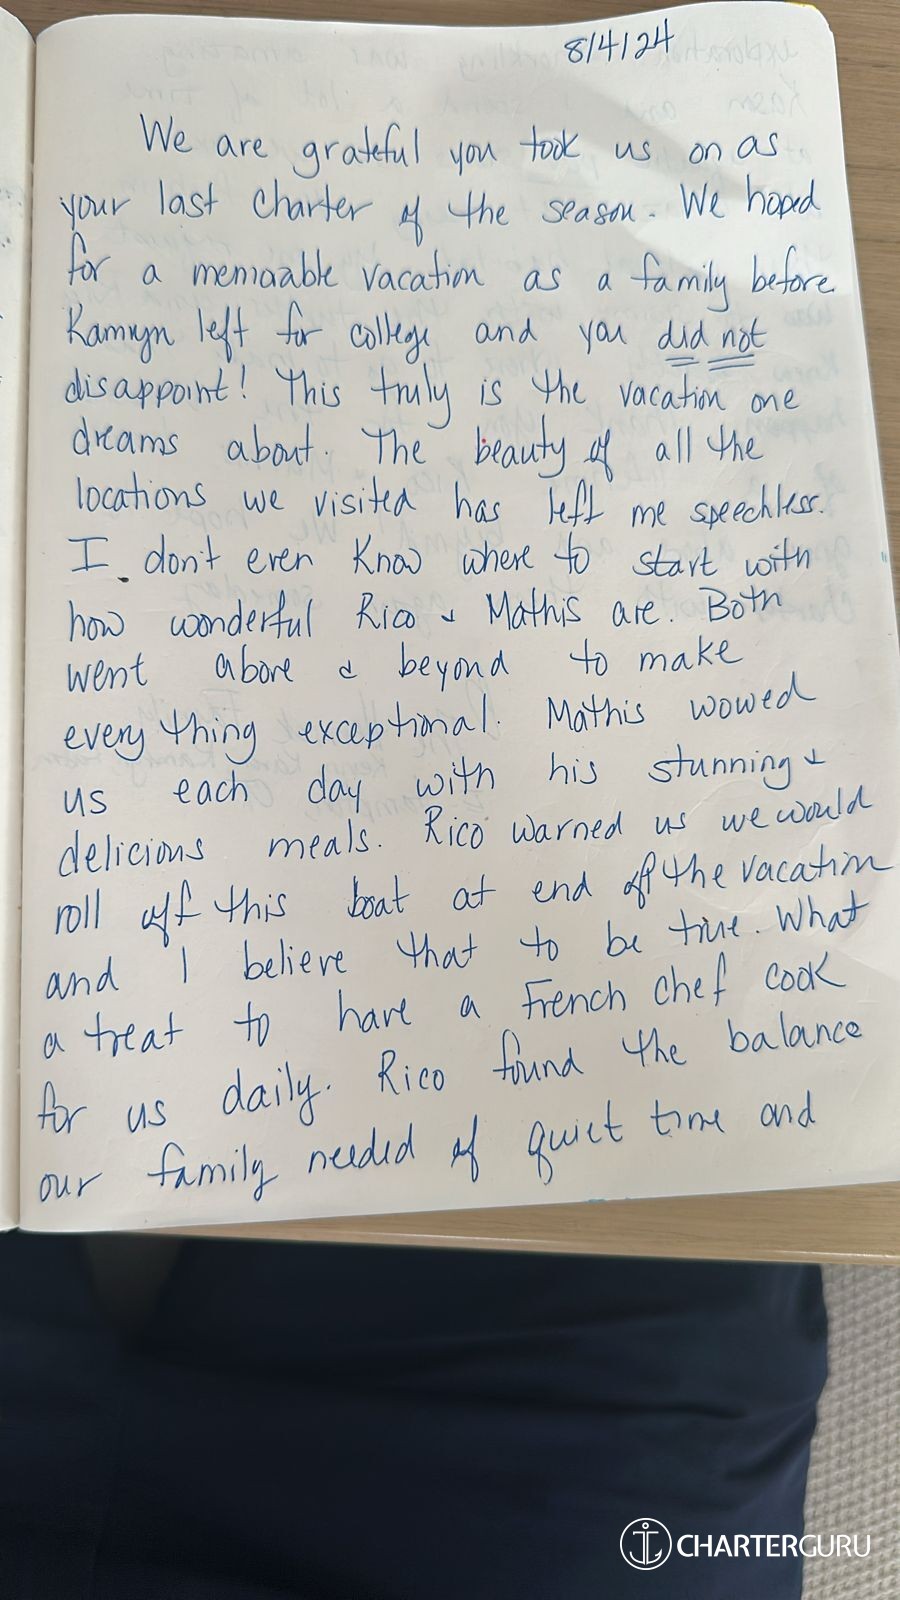 8/4/24
We are grateful you took us on as
your last charter of the season. We hoped
for a memorable vacation as a family before
Kamryn left for college and you did not
disappoint! This truly is the vacation one
dreams about. The beauty of all the
locations we visited has left me speechless.
I don't even know where to start with
how wonderful Rico & Mathis are. Both
went above & beyond to make
every thing exceptional. Mathis wowed
us each day with his stunning &
delicious meals. Rico warned us we would
roll off this boat at end of the vacation
and I believe that to be true. What
a treat to have a French chef cook
for us daily. Rico found the balance
our family needed of quiet time and
CHARTERGURU